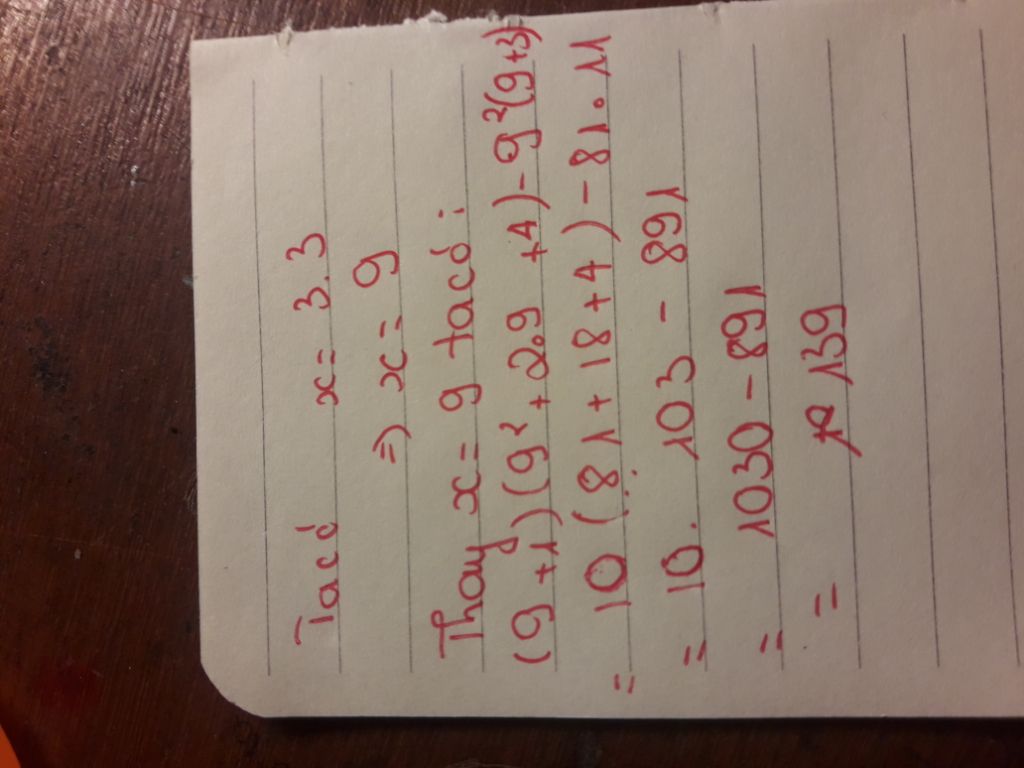 Ta có x = 3.3
=> x = 9
Thay x = 9 ta có :
(9 +1) (9² + 2.9 +4) - 9²(9+3)
= 10 (81 + 18 + 4) - 81.11
= 10. 103 - 891
= 1030 - 891
= 139